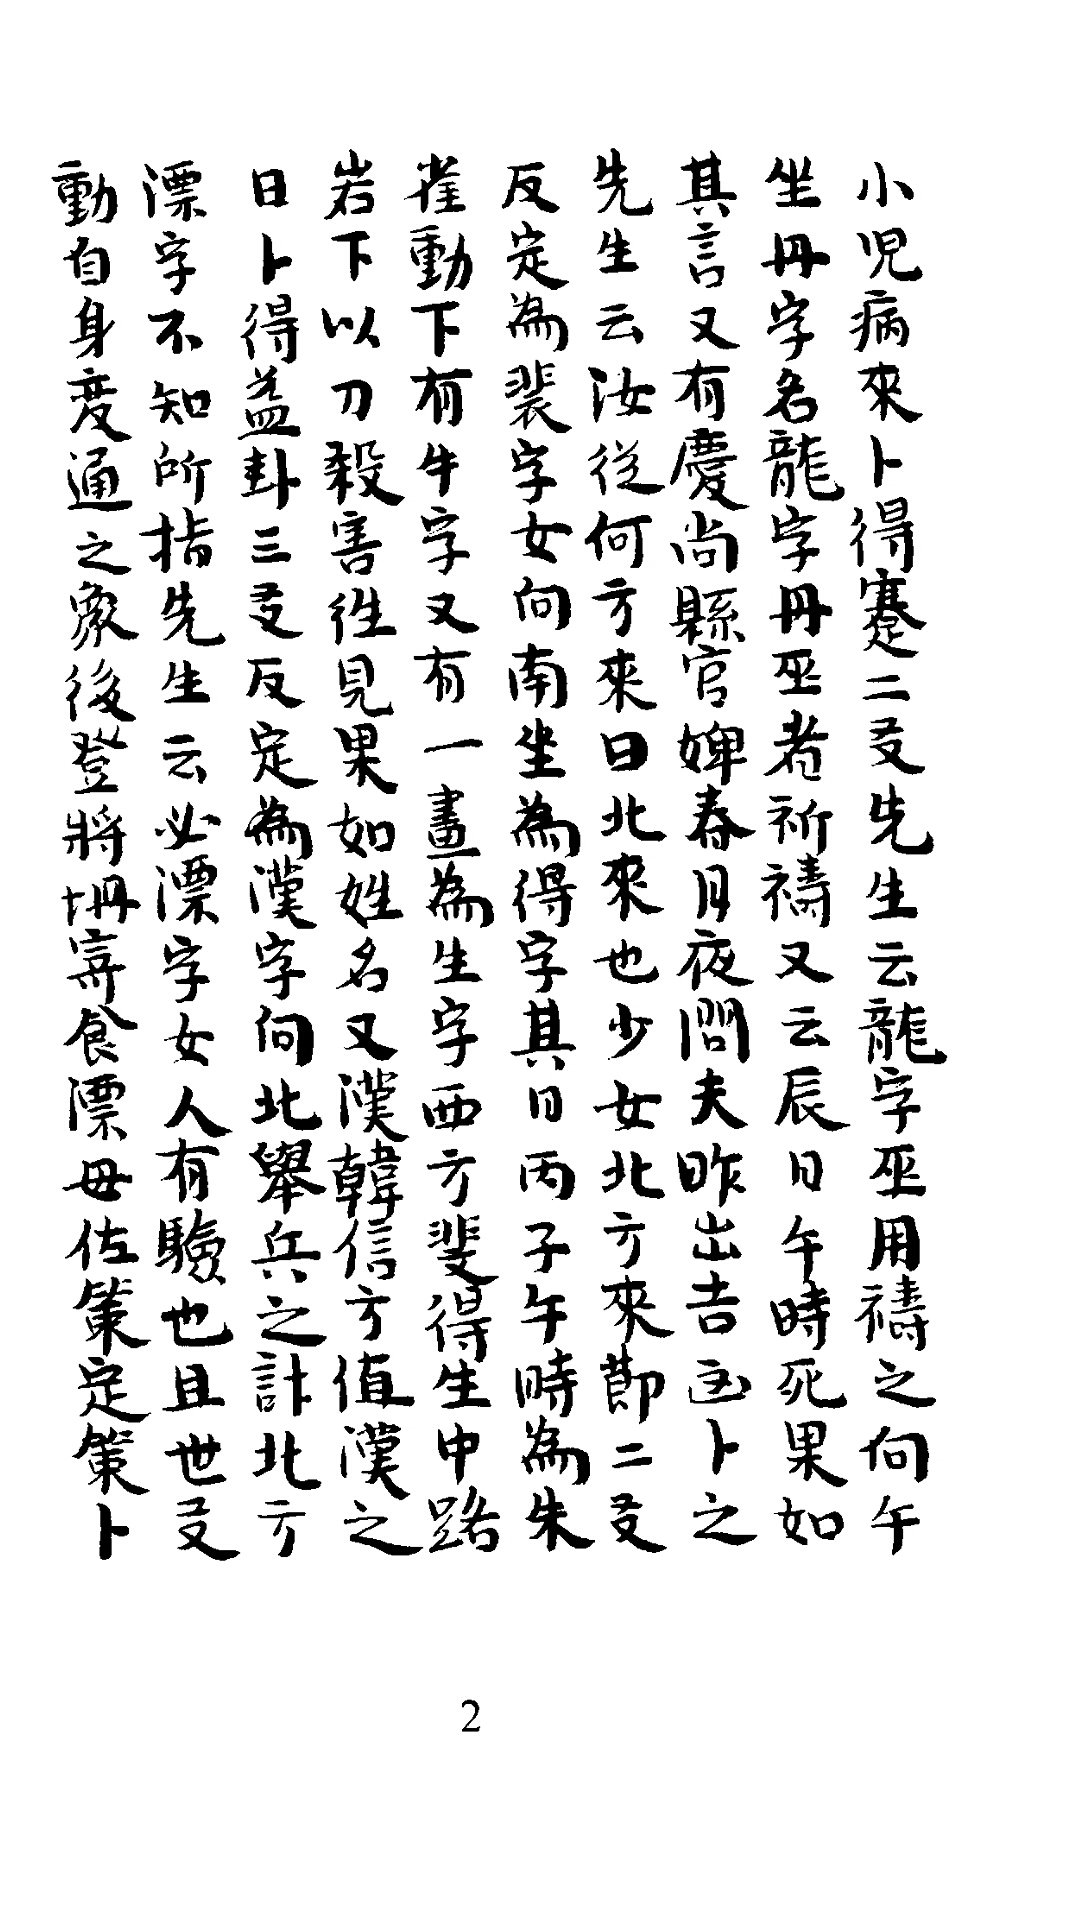 小児病來卜得蹇二爻先生云龍字巫用禱之向午
坐冊字名龍字冊巫者祈禱又云辰日午時死果如
其言又有慶尚縣官婢春月夜問夫昨出吉凶卜之
先生云汝從何方來曰北來也少女北方來節二爻
反定為裴字女向南坐為得字其日丙子午時為朱
雀動下有牛字又有一畫為生字西方斐得生中路
岩下以刀殺害徃見果如姓名又漢韓信方值漢之
日卜得益卦三爻反定為漢字向北舉兵之計北方
漂字不知所指先生云必漂字女人有驗也且世爻
動自身度通之象後登將坍寄食漂毋佐策定策卜
2